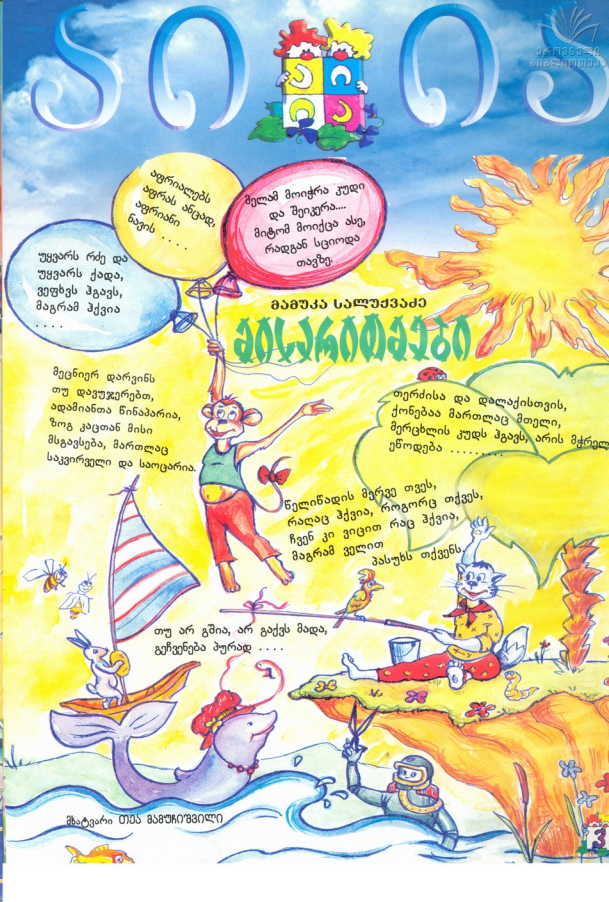 აი ია
ეროვნული
ბიბლიოთეკა
აი
ია
აფრიალებს
აფრას ანცად,
აფრიანი
ნავის . . . .
მელამ მოიჭრა კუდი
და შეიკერა....
მიტომ მოიქცა ასე,
რადგან სციოდა
თავზე.
უყვარს რძე და
უყვარს ქადა,
ვეფხვს ჰგავს,
მაგრამ ჰქვია
. . . .
მამუკა სალუქვაძე
მისარითმები
მეცნიერ დარვინს
თუ დავუჯერებთ,
ადამიანთა წინაპარია,
ზოგ კაცთან მისი
მსგავსება, მართლაც
საკვირველი და საოცარია.
თერძისა და დალაქისთვის,
ქონებაა მართლაც მთელი,
მერცხლის კუდს ჰგავს, არის მჭრელ
ეწოდება .........
წელიწადის მერვე თვეს,
რაღაც ჰქვია, როგორც თქვეს,
ჩვენ კი ვიცით რაც ჰქვია,
მაგრამ ველით
პასუხს თქვენს
თუ არ გშია, არ გაქვს მადა,
გეჩვენება პურად . . . .
მხატვარი თეა მამუჩიშვილი
3